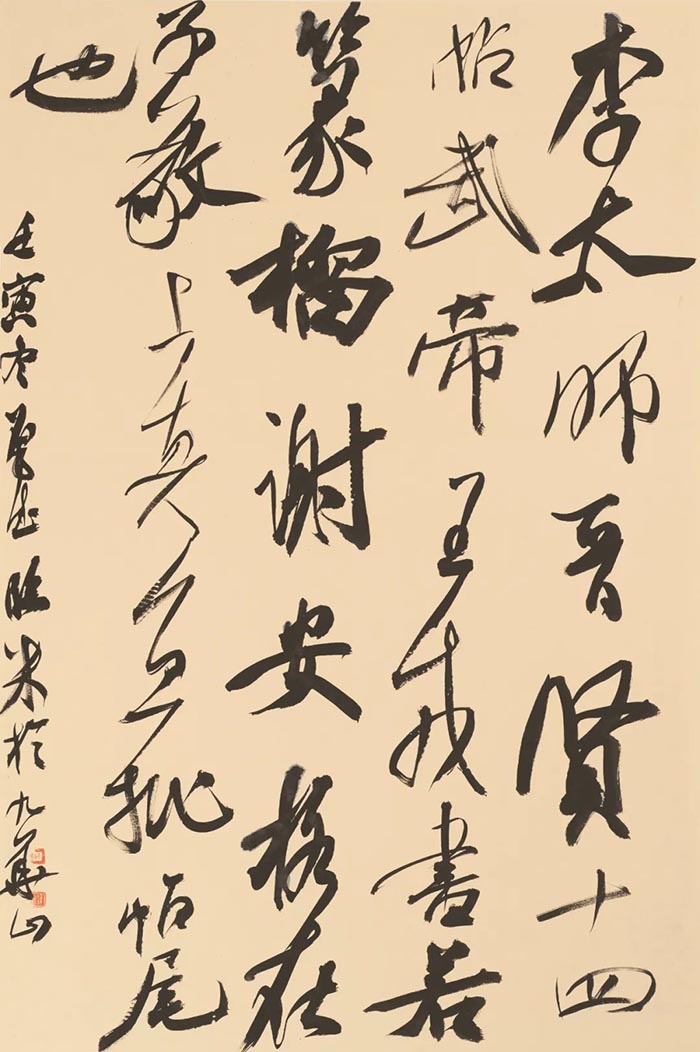 李太师晋贤十四
帖武帝王戎書若
篆榴谢安格在
子敬上真宜批帖尾
也
壬寅冬临米於九華山